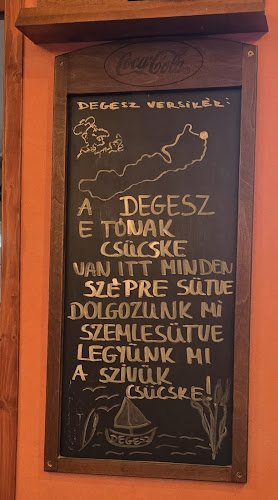 Coca-Cola
DEGESZ VERSIKÉR:
A DEGESZ
E TÓNAK
CSÜCSKE
VAN ITT MINDEN
SZÉPRE SÜTVE
DOLGOZUNK MI
SZEMLESÜTVE
LEGYÜNK MI
A SZIVÜK
CSÜCSKE!
DEGESZ